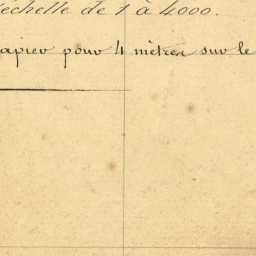 echelle de 1 à 4000.
apier pour 4 mètres sur le